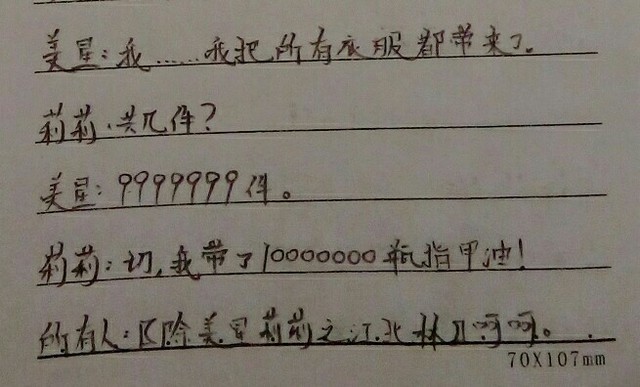 美星：我……我把所有衣服都带来了。
莉莉：共几件？
美星：9999999件。
莉莉：切，我带了10000000瓶指甲油！
所有人：【除美星莉莉之江北林】呵呵。
70X107mm